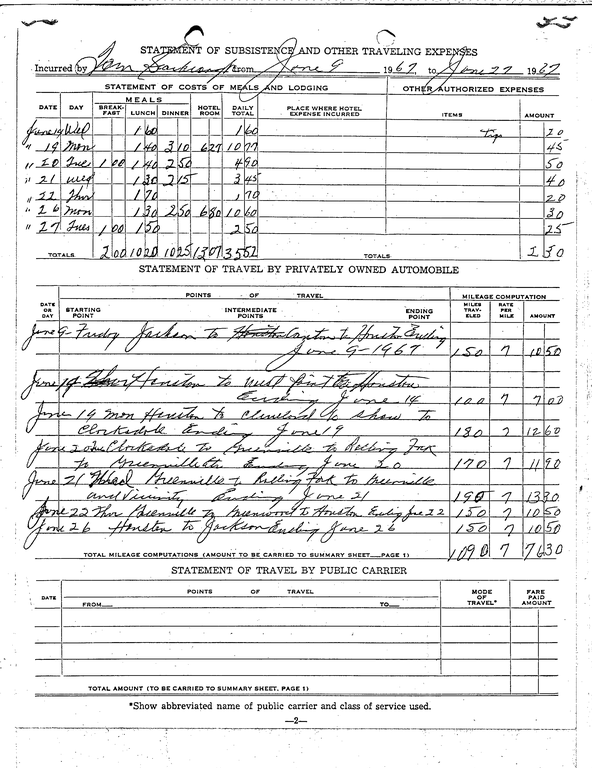 STATEMENT OF SUBSISTENCE AND OTHER TRAVELING EXPENSES
Incurred by Tom from June 9 1967, to June 27 1967
STATEMENT OF COSTS OF MEALS AND LODGING OTHER AUTHORIZED EXPENSES
DATE DAY MEALS BREAK-FAST LUNCH DINNER HOTEL ROOM DAILY TOTAL PLACE WHERE HOTEL EXPENSE INCURRED ITEMS AMOUNT
June 14 Wed 1 60 1 60 Tips 20
" 19 Mon 1 40 3 10 6 27 10 77 45
" 20 Tues 1 00 1 40 2 50 4 90 50
" 21 Wed 1 30 2 15 3 45 40
" 22 Thur 1 70 1 70 20
" 26 Mon 1 30 2 50 6 80 10 60 30
" 27 Tues 1 00 1 50 2 50 25
TOTALS 2 00 10 20 10 25 13 07 35 52 TOTALS 2 30
STATEMENT OF TRAVEL BY PRIVATELY OWNED AUTOMOBILE
DATE OR DAY POINTS OF TRAVEL MILEAGE COMPUTATION
STARTING POINT INTERMEDIATE POINTS ENDING POINT MILES TRAV-ELED RATE PER MILE AMOUNT
June 9- Friday Jackson to to Houston Ending
June 9-1967 150 7 10 50
June 14 Houston to West Point to Houston
Ending June 14 100 7 7 00
June 19 Mon Houston to Cleveland to Shaw to
Clarksdale Ending June 19 180 7 12 60
June 20 Tue Clarksdale to Greenville to Rolling Fork
to Greenville Ending June 20 170 7 11 90
June 21 Wed Greenville to Rolling Fork to Greenville
and Vicinity Ending June 21 190 7 13 30
June 22 Thur Greenville to Greenwood to Houston Ending June 22 150 7 10 50
June 26 Houston to Jackson Ending June 26 150 7 10 50
TOTAL MILEAGE COMPUTATIONS (AMOUNT TO BE CARRIED TO SUMMARY SHEET—PAGE 1) 1090 7 76 30
STATEMENT OF TRAVEL BY PUBLIC CARRIER
DATE POINTS OF TRAVEL MODE OF TRAVEL* FARE PAID AMOUNT
FROM— TO—
TOTAL AMOUNT (TO BE CARRIED TO SUMMARY SHEET, PAGE 1)
*Show abbreviated name of public carrier and class of service used.
—2—